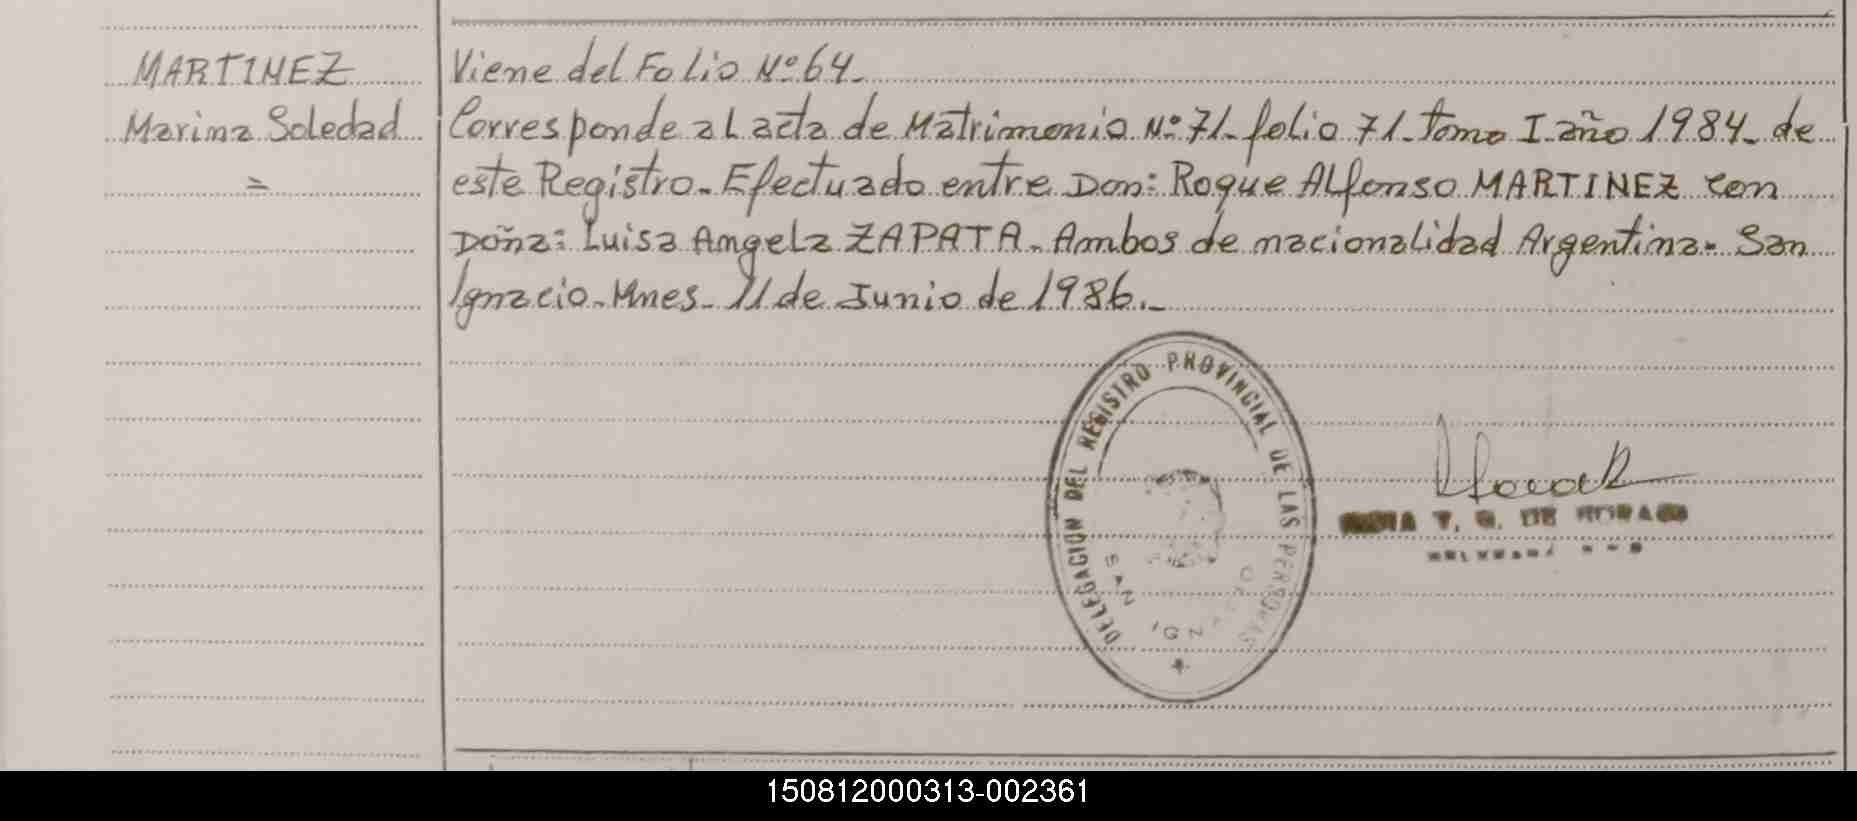 MARTINEZ
Marina Soledad
=
Viene del Folio Nº 64.
Corresponde al acta de Matrimonio Nº 71. folio 71. tomo I. año 1984. de
este Registro. Efectuado entre Don: Roque Alfonso MARTINEZ con
Doña: Luisa Angela ZAPATA. Ambos de nacionalidad Argentina. San
Ignacio. Mnes. 11 de Junio de 1986._
DELEGACION DEL REGISTRO PROVINCIAL DE LAS PERSONAS
SAN IGN
T. G. DE
150812000313-002361